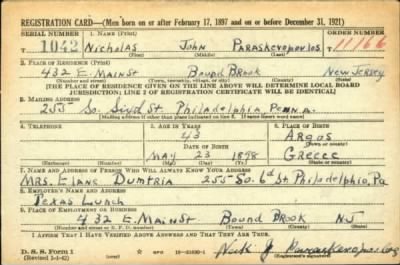 REGISTRATION CARD—(Men born on or after February 17, 1897 and on or before December 31, 1921)
SERIAL NUMBER 1. NAME (Print) ORDER NUMBER
1042 Nicholas John Paraskevopoulos 11166
(First) (Middle) (Last)
2. PLACE OF RESIDENCE (Print)
432 E. Main St Bound Brook New Jersey
(Number and street) (Town, township, village, or city) (County) (State)
[THE PLACE OF RESIDENCE GIVEN ON THE LINE ABOVE WILL DETERMINE LOCAL BOARD
JURISDICTION; LINE 2 OF REGISTRATION CERTIFICATE WILL BE IDENTICAL]
3. MAILING ADDRESS
255 So. St Philadelphia, Penna.
[Mailing address if other than place indicated on line 2. If same insert word same]
4. TELEPHONE 5. AGE IN YEARS 6. PLACE OF BIRTH
43 Argos
DATE OF BIRTH (Town or county)
May 23 1898 Greece
(Exchange) (Number) (Mo.) (Day) (Yr.) (State or country)
7. NAME AND ADDRESS OF PERSON WHO WILL ALWAYS KNOW YOUR ADDRESS
Mrs. Elane Dumtria 255 So. 6th St. Philadelphia, Pa
8. EMPLOYER'S NAME AND ADDRESS
Texas Lunch
9. PLACE OF EMPLOYMENT OR BUSINESS
432 E. Main St Bound Brook NJ
(Number and street or R. F. D. number) (Town) (County) (State)
I AFFIRM THAT I HAVE VERIFIED ABOVE ANSWERS AND THAT THEY ARE TRUE.
D. S. S. Form 1
(Revised 1-1-42) (over) GPO 16-21630-1 Nick J Paraskevopoulos